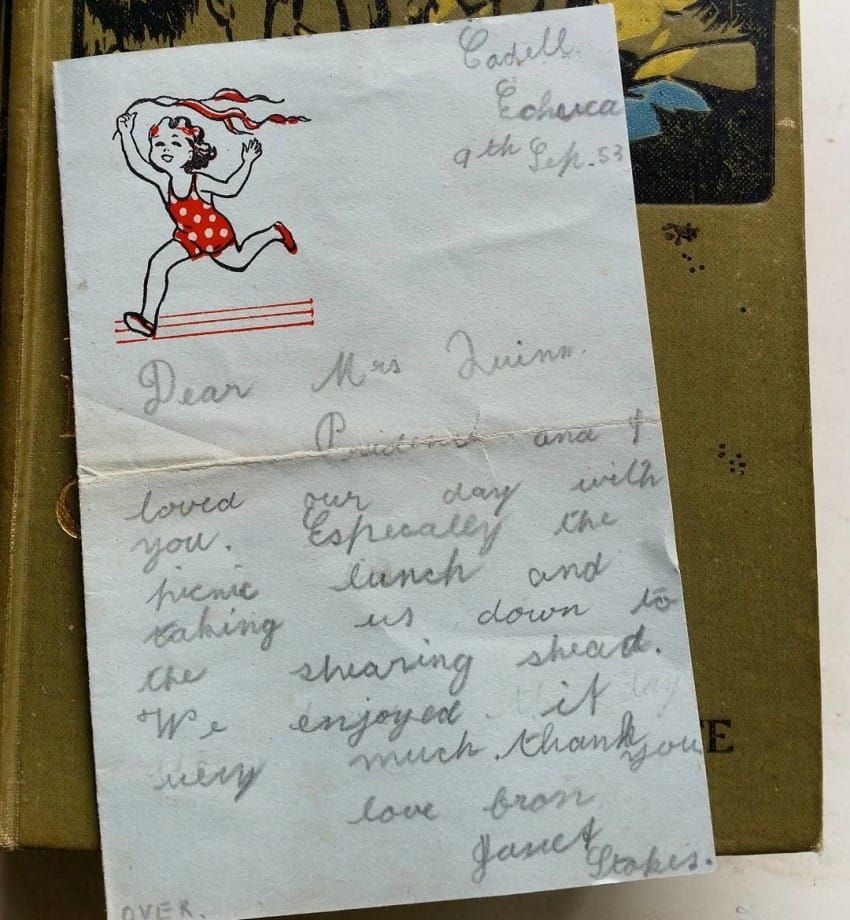 Cadell.
Echuca
9th Sep. 53
Dear Mrs Quinn.
Prudence and I
loved our day with
you. Especally the
picnic lunch and
taking us down to
the shearing shead.
We enjoyed it
very much thank you
love from
Janet
Stokes.
OVER.